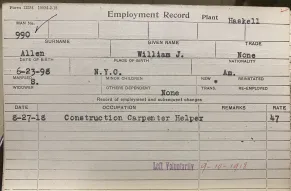 Form 1224 10M-2-18
Employment Record Plant Haskell
MAN No.
990
SURNAME GIVEN NAME TRADE
Allen William J. None
DATE OF BIRTH PLACE OF BIRTH NATIONALITY
6-23-98 N.Y.C. Am.
MARRIED S. MINOR CHILDREN NEW REINSTATED
WIDOWER OTHERS DEPENDENT None TRANS. RE-EMPLOYED
Record of employment and subsequent changes
DATE OCCUPATION REMARKS RATE
8-27-18 Construction Carpenter Helper 47
Left Voluntarily 9-10-1918